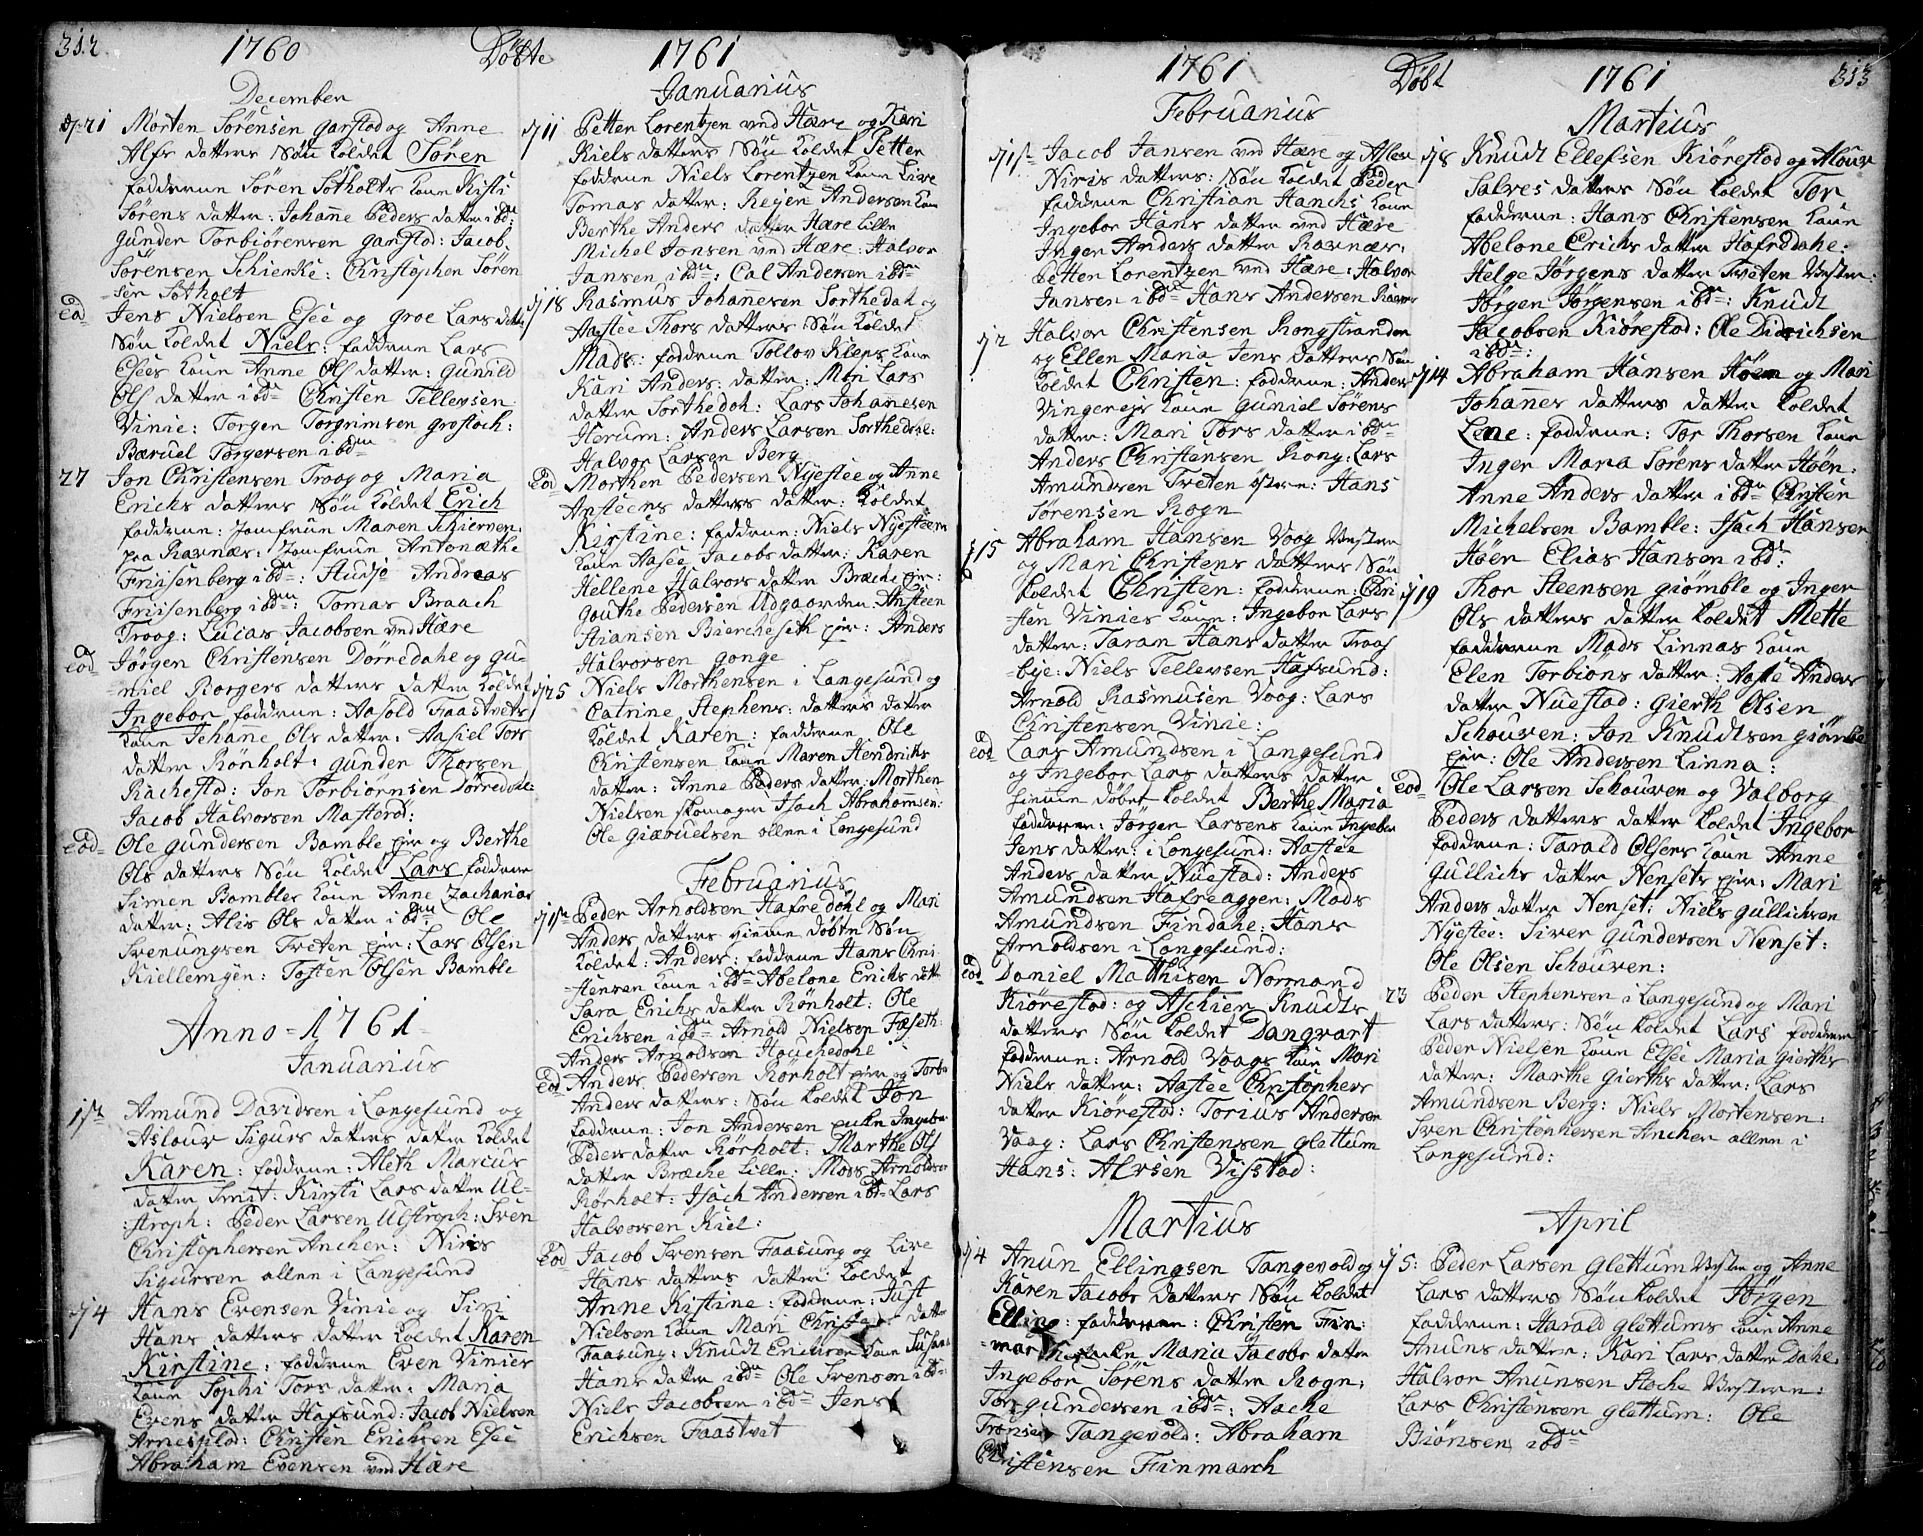 312
1760
Döbte
1761
December
d 21 Morten Sörensen garstod og Anne
Alfs datters Sön koldet Sören
fadderne Sören Sotholts kone Kisti
Sörens datter: Johanne Peders datter ibd
Gunder Torbiörensen garstod: Jacob
Sörensen Schierke: Christophen Sören
sen Sotholt
eod Jens Nielsen Esee og groe Lars datters
Sön koldet Niels: fadderne Lars
Esees kone Anne Ols datter: Gunild
Ols datter ibd Christen Tellevsen
Vinie: Torgen Torgrimsen grostoch:
Bæruel Torgersen ibd
27 Jon Christensen Troog og Maria
Erichs datters Sön koldet Erich
fadderne: Jomfrue Maren Schierven
paa Ravnæs: Jomfrue Antonæthe
Friisenberg ibd: Andreas
Friisenberg ibd: Tomas Braach
Troog: Lucias Jacobsen ved Hære
eod Jörgen Christensen Dörredahl og Gu-
niel Borgers datters datter koldet
Ingebor fadderne: Aasold Faastvets
kone Johanne Ols datter: Aasiel Tors
datter Rönholt: Gunder Thorsen
Rachestod: Jon Torbiörnsen Dörredahl:
Jacob Halvorsen Mastorod:
eod Ole Gundersen Bamble pir og Berthe
Ols datters Sön koldet Lars fadderne
Simen Bambles kone Anne Zacharias
datter: Alis Ols datter ibd Ole
Svenungsen Tveten pir: Lars Olsen
Kiellemyen: Tosten Olsen Bamble
Anno 1761
Januarius
1st Amund Davidsen i Langesund og
Aslour Sigurs datters datter koldet
Karen: fadderne: Aleth Marcus
datter Smit: Kirsti Lars datter Ul-
stroph: Peder Larsen Ulstroph: Sven
Christophersen Ancher: Niris
Sigursen allen i Langesund
d 4 Hans Evensen Vinie og Siri
Hans datters datter koldet Karen
Kirstine: fadderne Even Vinies
kone Sophi Tors datter: Maria
Evens datter Hafsund: Jacob Nielsen
Arnesplod: Christen Erichsen Esee
Abraham Evensen ved Hære
Januarius
d 11 Petter Lorentzen ved Hære og Kari
Niels datters Sön koldet Petter
fadderne Niels Lorentzen kone Live
Tomas datter: Rejer Andersen kone
Berthe Anders datter Hære Lille
Michel Jonsen ved Hære: Halvor
Jansen ibd: Cal Andersen ibd
d 18 Rasmus Johannesen Sorthedal og
Aastee Thors datters Sön koldet
Mads: fadderne Tollov Kleps kone
Kari Anders: datter: Mari Lars
datter Sorthedoh: Lars Johanesen
Herum: Anders Larsen Sorthedahl:
Halvor Larsen Berg
eod Morthen Pedersen Nyestee og Anne
Ansteens datters datter: koldet
Kirstine: fadderne: Niels Nyesteens
kone Aasee Jacobs datter: Karen
Hellene Halvors datter Bræche pir:
Gouthe Pedersen Udgaarden: Ansteen
Stiansen Biercheseth pir: Anders
Halvorsen gonge
d 25 Niels Morthensen i Langesund og
Catrine Stephens: datters datter
koldet Karen: fadderne Ole
Christensen kone Maren Hendrichs
datter: Anne Peders datter: Morthen
Nielsen skomager Isach Abrahamsen:
Ole Giæbuelsen allen i Langesund
Februarius
d 1st Peder Arnoldsen Hafredahl og Mari
Anders datters hiemme döbte Sön
koldet: Anders: fadderne Hans Chri-
stensen kone ibd Abelone Erichs datt
Sara Erichs datter Rönholt: Ole
Erichsen ibd Arnold Nielsen Fæseth:
Anders Arnoldsen Houchedahl
eod Anders Pedersen Rörholt pir og Torbor
Anders datters: Sön koldet Jon
fadderne: Jon Andersen enke Ingebor
Peders datter Rörholt: Marthe Ols
datter Bræche Lille: Moss Arnoldsen
Rörholt: Isach Andersen ibd Lars
Halvorsen Kiel:
eod Jacob Svensen Faasung og Live
Hans datters datter koldet
Anne Kistine: fadderne: Just
Nielsen kone Mari datter
Faasung: Knudt Erichsen kone Susana
Hans datter ibd Ole Svensen ibd
Niels Jacobsen ibd Jens
Erichsen Faastvet
1761
Döbt
1761
313
Februarius
d 1st Jacob Jansen ved Hære og Aslau
Niris datters: Sön koldet Peder
fadderne Christian Hanchs kone
Ingebor Hans datter ved Hære
Inger Anders datter Ravnæs:
Petter Lorentzen ved Hære: Halvor
Jansen ibd Hans Andersen Ravnæs
d 2 Halvor Christensen Rongstranden
og Ellen Maria Jens datters Sön
koldet Christen: fadderne: Anders
Vingereis kone Guniel Sörens
datter: Mari Tors datter ibd
Anders Christensen Rong: Lars
Amundsen Tveten östere: Hans
Sörensen Rogn
d 15 Abraham Hansen Voog Vestre
og Mari Christens datters Sön
koldet Christen: fadderne: Chri-
sten Vinies kone: Ingebor Lars
datter: Taran Hans datter Traas
bye: Niels Tellevsen Hafsund:
Arnold Rasmusen Voog: Lars
Christensen Vinie:
eod Lars Amundsen i Langesund
og Ingebor Lars datters datter
hiemme döbet koldet Berthe Maria
fadderne: Jörgen Larsens kone Ingebor
Jens datter: i Langesund: Aastee
Anders datter Nuestad: Anders
Amundsen Hafreaggen: Mads
Amundsen Findahe: Hans
Arnoldsen i Langesund:
eod Daniel Matthisen Normand
Kiörestod: og Aschier Knudts
datters Sön koldet Dangvart
fadderne: Arnold Voogs kone Mari
Niels datter: Aastee Christophers
datter Kiörestod: Torius Andersen
Voog: Lars Christensen Glettum
Hans: Alvsen Vistad:
Martius
d 4 Anun Ellingsen Tangevold og
Karen Jacobs datters Sön koldet
Elling: fadderne: Christen Fin-
mar Maria Jacobs datter
Ingebor Sörens datter Rogn:
Tor gundersen ibd: Aache
Tronsen Tangevold: Abraham
Christensen Finmarch
Martius
d 8 Knudt Ellefsen Kiörestod og Alour
Salves datters Sön koldet Tor
fadderne: Hans Christensen kone
Abelone Erichs datter Hafredahe:
Helge Jörgens datter Tveten Vestre:
Jörgen Jörgensen ibd: Knudt
Jacobsen Kiörestod: Ole Didrichsen
ibd:
d 14 Abraham Hansen Höen og Mari
Johannes datters datter koldet
Lene: fadderne: Tor Thorsen kone
Inger Maria Sörens datter Höen:
Anne Anders datter ibd Christen
Michelsen Bamble: Isach Hansen
Höen Elias Hansen ibd:
d 19 Thor Steensen Giömble og Inger
Ols datters datter koldet Mette
fadderne Mads Linnas kone
Elen Torbiöns datter: Aaste Anders
datter Nuestad: Gierth Olsen
Schouven: Jon Knudtsen Giömble
pir: Ole Andersen Linna:
eod Ole Larsen Schouven og Valborg
Peders datters datter koldet Ingebor
fadderne: Tarald Olsens kone Anne
Gullichs datter Nensets pir: Mari
Anders datter Nenset: Niels Gullichsen
Nyestee: Siver Gundersen Nenset:
Ole Olsen Schouven:
23 Peder Stephensen i Langesund og Mari
Lars datters: Sön koldet Lars fadderne
Peder Nielsen kone Elsee Maria Gierths
datter: Marthe Gierths datter: Lars
Amundsen Berg: Niels Mortensen:
Sven Christophersen Ancher allen i
Langesund:
April
d 5: Peder Larsen Glettum Vestre og Anne
Lars datters Sön koldet Jörgen
fadderne: Harald Glettums kone Anne
Anuns datter: Kari Lars datter Dahl:
Halvor Anunsen Stoche Vestere:
Lars Christensen Glettum: Ole
Biönsen ibd